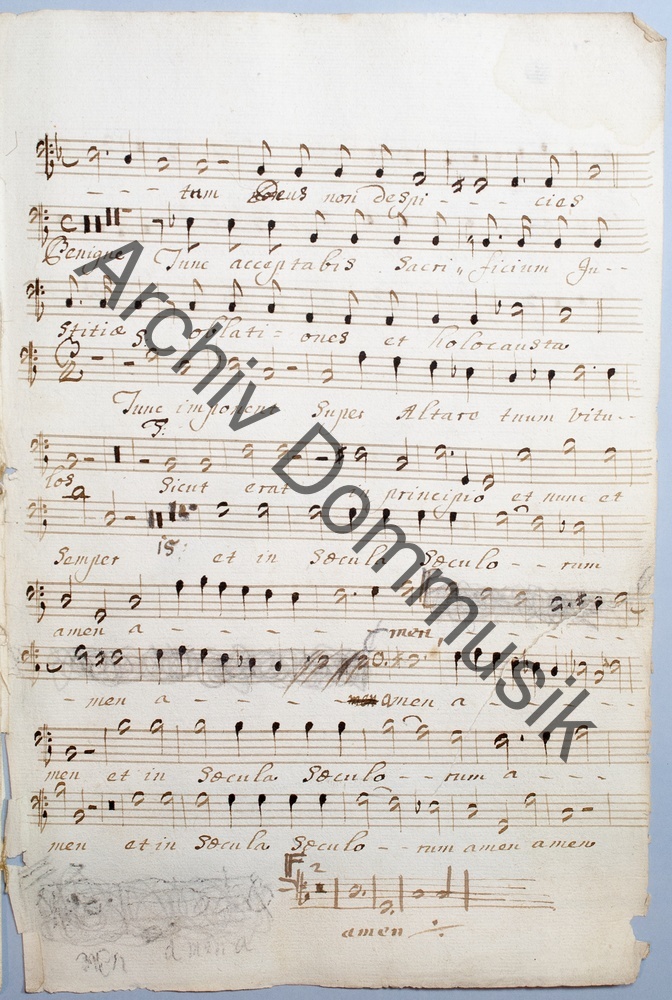 - - - - tum Deus non despi - - - - cies
Benigne Tunc acceptabis Sacri„ficium Ju--
stitiæ oblati- ones et holocausta
Tunc imponent Super Altare tuum vitu--
5:
los Sicut erat in principio et nunc et
15:
Semper et in Sæcula Sæculo -- rum
amen a - - - - - - - men - - - -
- men a - - - - - amen a - - - -
men et in Sæcula Sæculo -- rum a - - - -
men et in Sæcula Sæculo -- rum amen amen
2
amen
men amen a
Archiv Dommusik